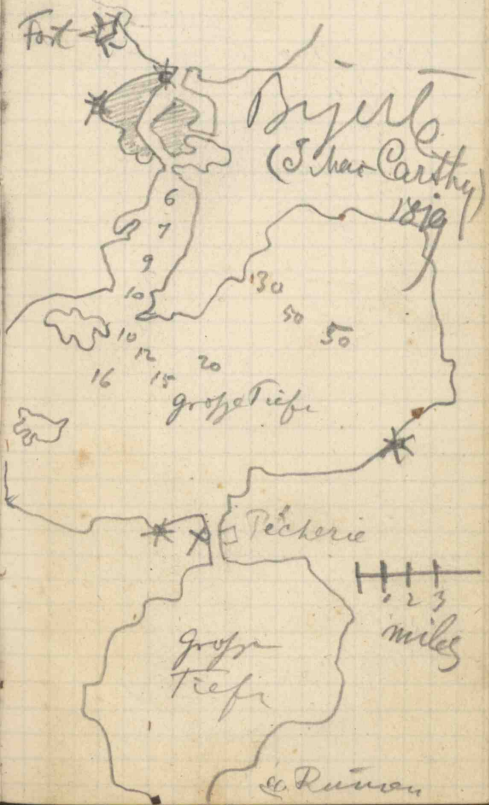 Fort
Bizerta
(J. MacCarthy)
1819
6
7
9
10
130
50
50
10
12
20
16
15
große Tiefe
Pêcherie
1 2 3
miles
große
Tiefe
Ruinen